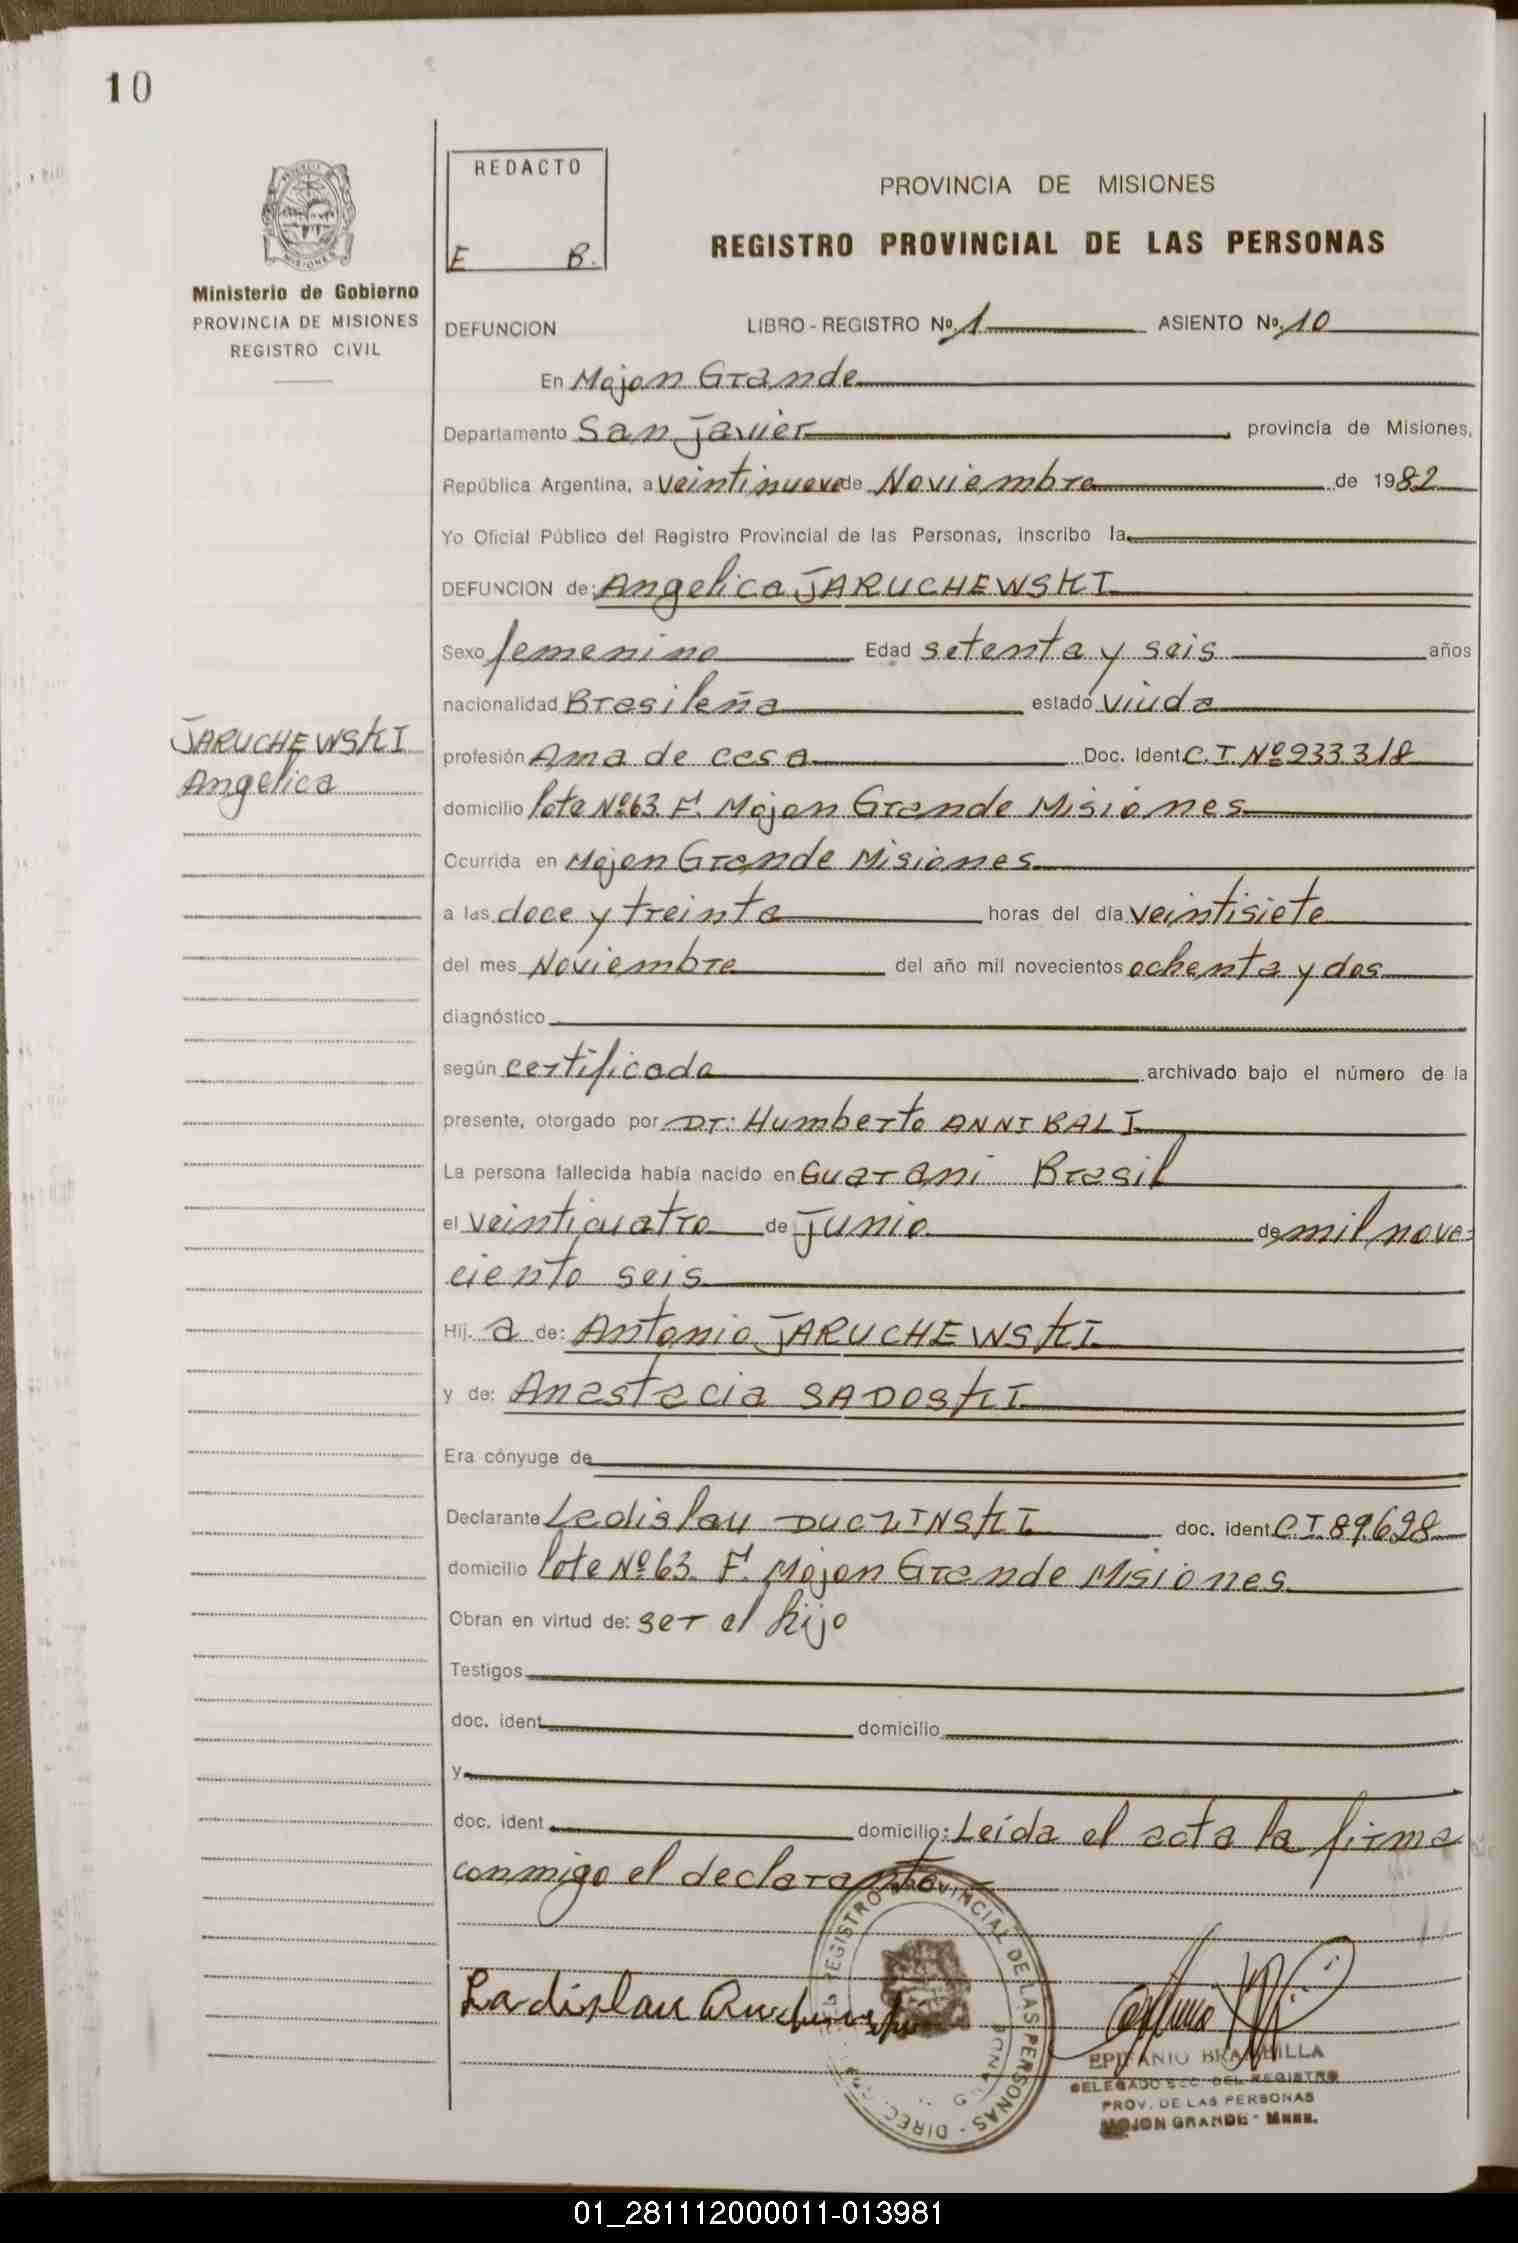 10
REDACTO
E B.
PROVINCIA DE MISIONES
REGISTRO PROVINCIAL DE LAS PERSONAS
Ministerio de Gobierno
PROVINCIA DE MISIONES
REGISTRO CIVIL
DEFUNCION LIBRO - REGISTRO No. 1 ASIENTO No. 10
En Mojon Grande
Departamento San Javier, provincia de Misiones,
República Argentina, a veintinueve de Noviembre de 1982
Yo Oficial Público del Registro Provincial de las Personas, inscribo la
DEFUNCION de: Angelica JARUCHEWSKI
Sexo femenino Edad setenta y seis años
nacionalidad Brasileña estado viuda
JARUCHEWSKI
Angelica
profesión Ama de casa Doc. Ident C.I. Nº 233318
domicilio lote Nº 63 F. Mojon Grande Misiones
Ocurrida en Mojon Grande Misiones
a las doce y treinta horas del día veintisiete
del mes Noviembre del año mil novecientos ochenta y dos
diagnóstico
según certificado archivado bajo el número de la
presente, otorgado por Dr: Humberto ANNIBALI
La persona fallecida había nacido en Guarani Brasil
el veinticuatro de Junio de mil nove-
ciento seis
Hij. a de: Antonio JARUCHEWSKI
y de: Anastacia SADOSKI
Era cónyuge de
Declarante Ladislau DUCZINSKI doc. ident C.I 89.628
domicilio lote Nº 63 F. Mojon Grande Misiones
Obran en virtud de: ser el hijo
Testigos
doc. ident domicilio
y
doc. ident domicilio: Leída el acta la firma
conmigo el declarante
Ladislau
REGISTRO PROVINCIAL DE LAS PERSONAS - DIREC.
EPIFANIO BRAMBILLA
DELEGADO SEC. DEL REGISTRO
PROV. DE LAS PERSONAS
MOJON GRANDE - Mnes.
01_281112000011-013981